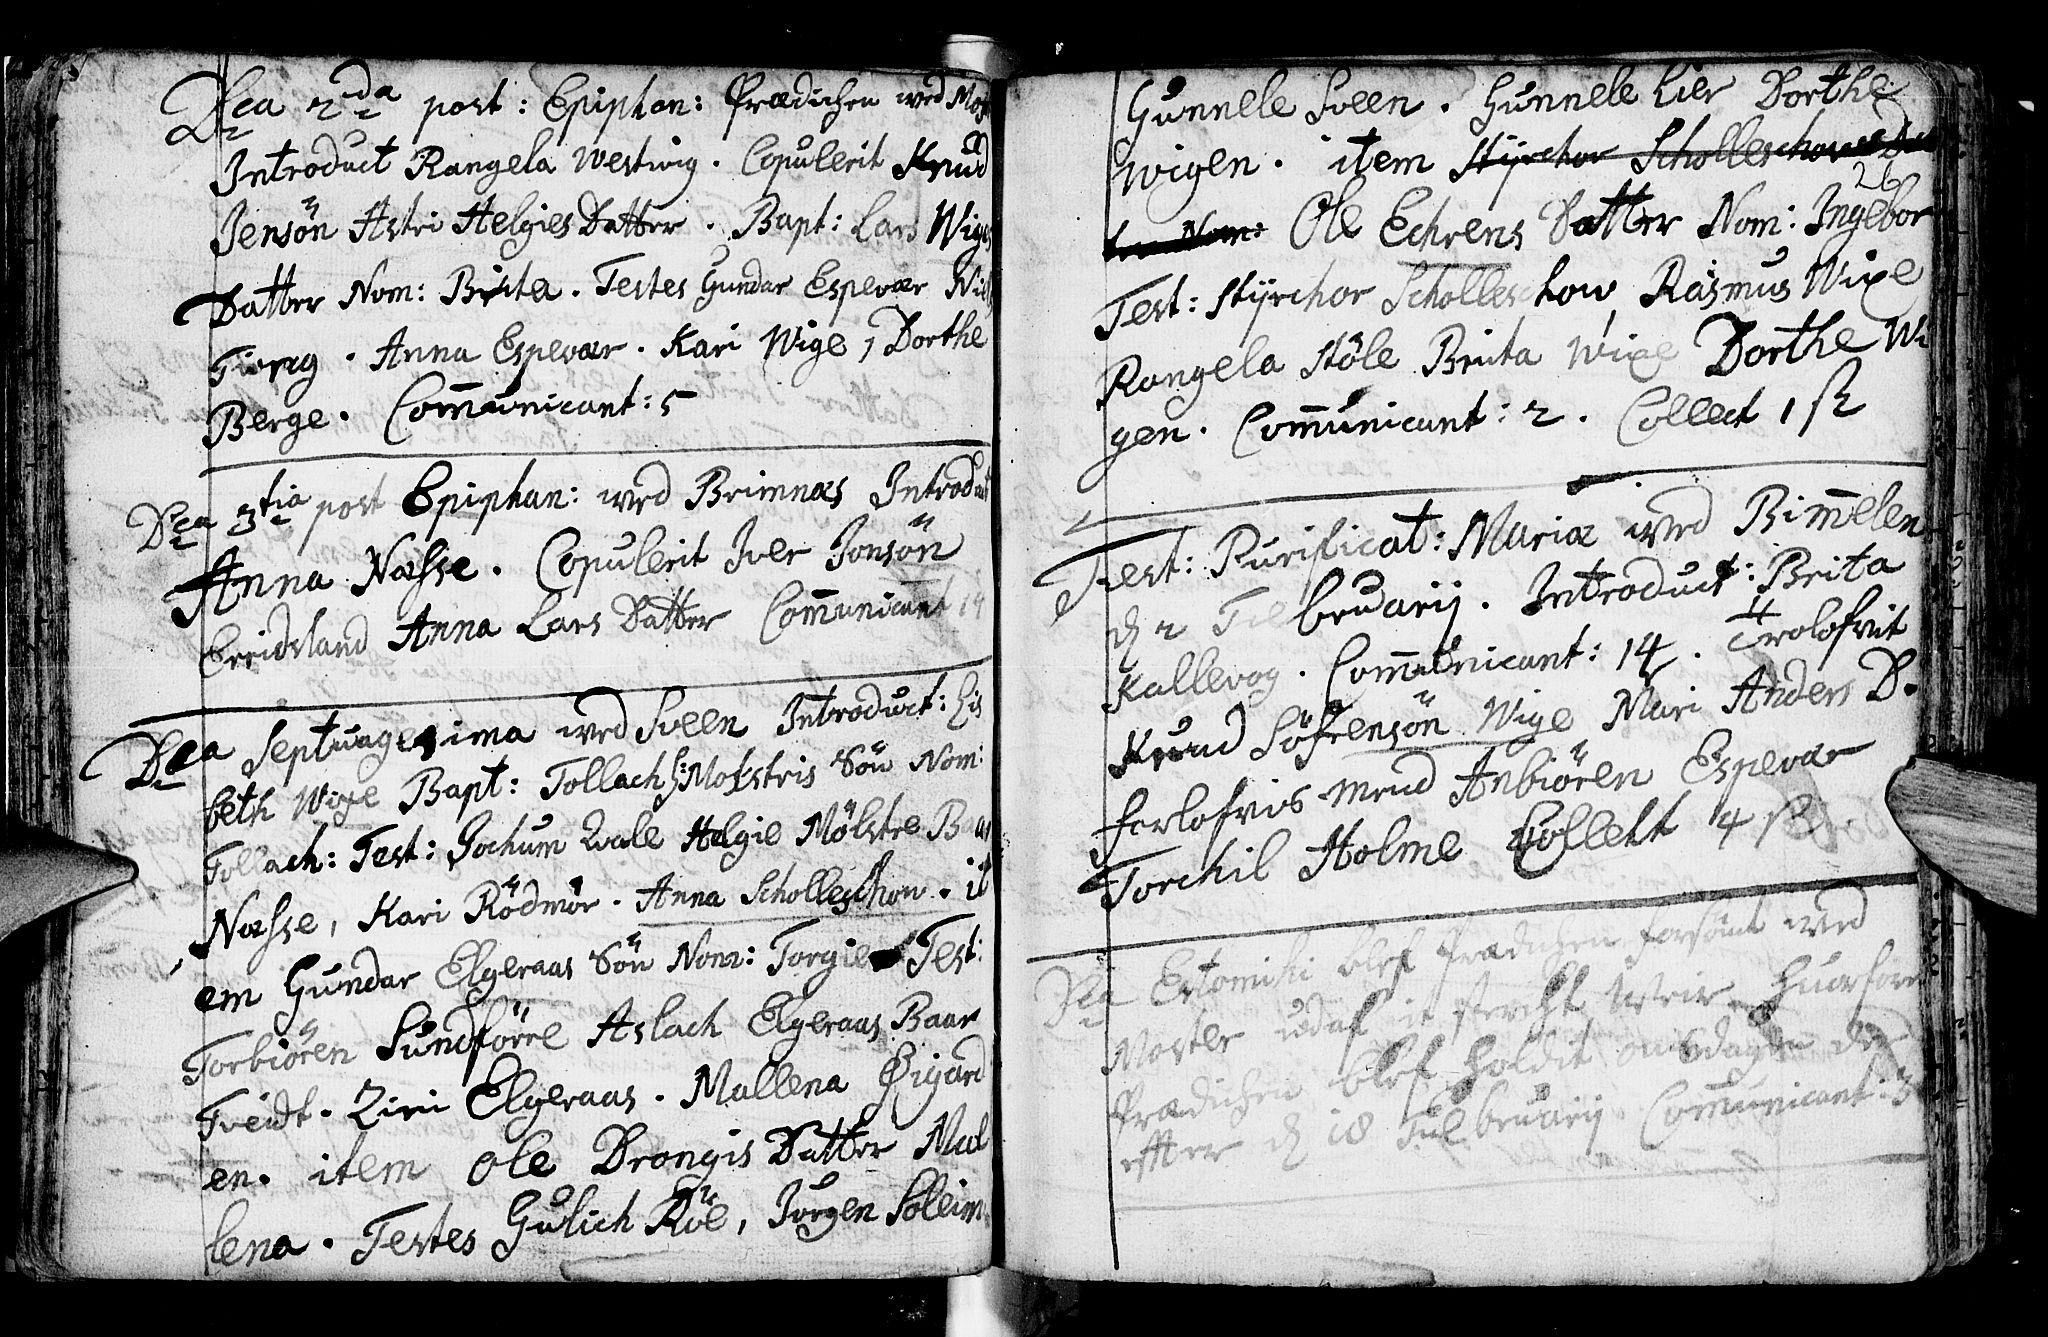 Dca 2da post: Epiphan: Prædichen wed Mos
Introduct Rangela Westwig. Copulerit Knud
Jensön Astri Helgies Datter. Bapt: Lars Wiges
Datter Nom: Brita. Testes Gundar Espevær
Anna Espevær. Kari Wige, Dorthe
Berge. Com̄unicant: 5
Dca 3tia post Epiphan: wed Brimnæs Introduct
Anna Næsse. Copulerit Iver Jonsön
Anna Lars Datter Com̄unicant 14
Dca Septuagesima wed Sveen Introduct: Lis
beth Wige Bapt: Tollach Mølstris Sön Nom:
Tollach: Test: Jochum Helgie Mölstre
Næsse, Kari Rödmör. Anna Scholleschow. it
em Gundar Elgeraas Sön Nom: Torgie Test:
Torbiören Sundförre Aslach Elgeraas Baar
Tveidt. Ziri Elgeraas. Mallena Øigard
en. item Ole Drongis Datter Mal
lena. Testes Gulich Röe, Jörgen Soleim
Gunnele Sveen. Gunnele Lier Dorthe
wigen. item Styrchor Scholleschows Dat
26
ter Nom: Ole Echrens Datter Nom: Ingebor
Test: Styrchor Scholleschow, Rasmus Wige
Rangela Stöle Brita Wige Dorthe Wi
gen. Com̄unicant: 2. Collect 1 ß
Fest: Purificat: Mariæ wed Bim̄elen
d 2 Februarij. Introduct: Brita
Kallevog. Com̄unicant: 14. Trolofvit
Knud Söfrensön Wige Mari Anders D.
forlofvis mend Anbiören Espevær
Torchil Holme Collect 4 ß.
Dca Estomihi blef Prædichen forsömt wed
Moster udaf it sterht weir. Huorfore
Prædichen blef holdit onsdagen der
effter d 18 Februarij Com̄unicant: 3